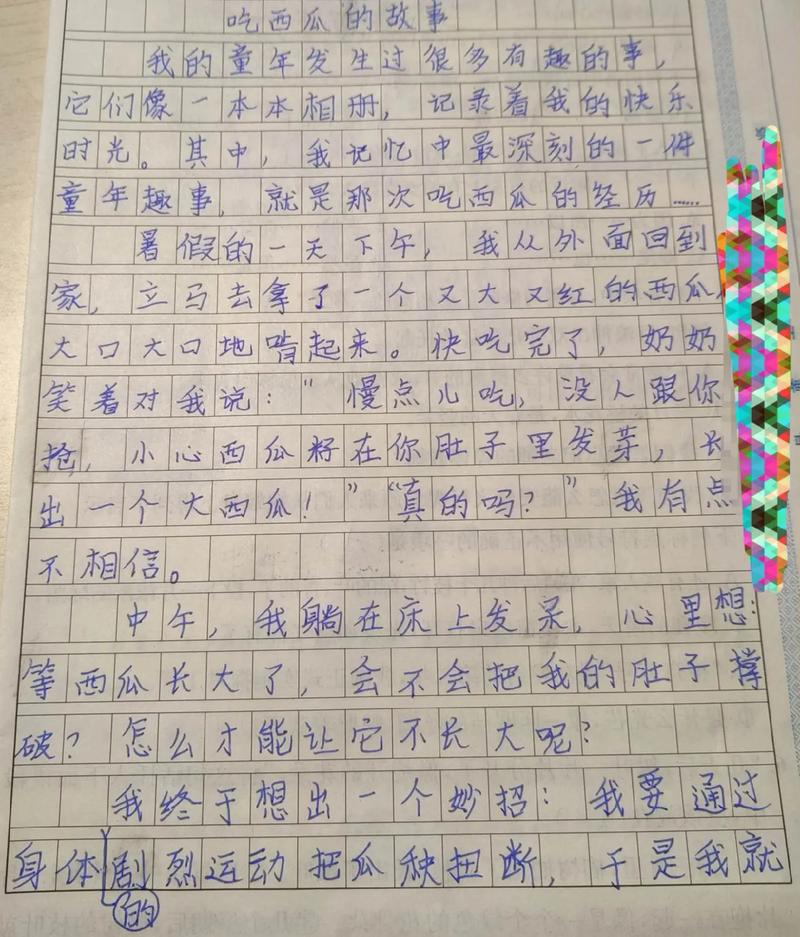 吃西瓜的故事
我的童年发生过很多有趣的事，
它们像一本本相册，记录着我的快乐
时光。其中，我记忆中最深刻的一件
童年趣事，就是那次吃西瓜的经历……
暑假的一天下午，我从外面回到
家，立马去拿了一个又大又红的西瓜，
大口大口地啃起来。快吃完了，奶奶
笑着对我说：“慢点儿吃，没人跟你
抢，小心西瓜籽在你肚子里发芽，长
出一个大西瓜！”“真的吗？”我有点
不相信。
中午，我躺在床上发呆，心里想：
等西瓜长大了，会不会把我的肚子撑
破？怎么才能让它不长大呢？
我终于想出一个妙招：我要通过
身体剧烈运动把瓜秧扭断，于是我就
的